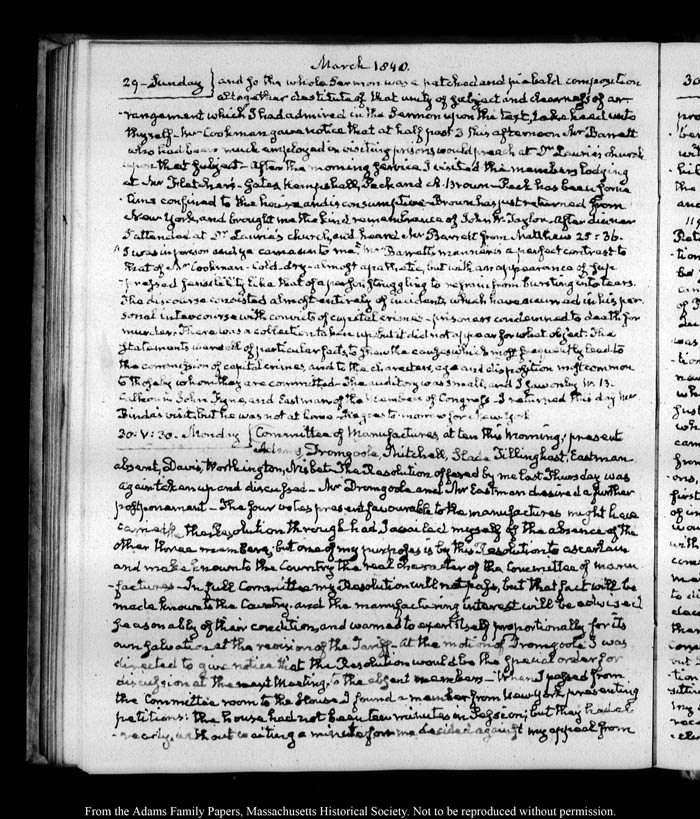 March 1840.
29 – Sunday } and so the whole Sermon was a patched and piebald composition
altogether destitute of that unity of subject and clearness of ar-
-rangement which I had admired in the Sermon upon the text, take heed unto
thyself – Mr Cookman gave notice that at half past 3 this afternoon Mr Barrett
who had been much employed in visiting prisons would preach at Dr Laurie's church
upon that subject – After the morning service I visited the members lodging
at Mr Fletcher's – Gates, Kempshall, Peck and A. Brown – Peck has been some
time confined to the house and is consumptive – Brown has just returned from
New York, and brought me the kind remembrance of John W. Taylor. After dinner
I attended at Dr Laurie's church, and heard Mr Barrett from Matthew 25 : 36.
"I was in prison and ye came unto me", Mr Barrett's manner is a perfect contrast to
that of Mr Cookman – Cold – dry – almost apathetic, but with an appearance of sup-
-pressed sensibility like that of a person struggling to refrain from bursting into tears.
The discourse consisted almost entirely of incidents which have occurred in his per-
sonal intercourse with convicts of capital crimes – prisoners condemned to death for
murder. There was a collection taken up but it did not appear for what object. The
statements were all of particular facts, to shew the causes which most frequently lead to
the commission of capital crimes, and to the characters, age and disposition most common
to those by whom they are committed – The auditory was small, and I saw only W. B.
Calhoun John Fine, and Eastman of the Members of Congress – I returned this day Mr
visit, but he was not at home – He goes to-morrow for New York
30. V: 30. Monday { Committee of Manufactures, at ten this Morning; present
Adams, Dromgoole, Mitchell, Slade Tillinghast, Eastman
absent, Davis, Worthington, Nisbet – The Resolution offered by me last Thursday was
again taken up and discussed – Mr Dromgoole and Mr Eastman desired a further
postponement – The four votes present favourable to the manufactures might have
carried the Resolution through had I availed myself of the absence of the
other three members; but one of my purposes is by this Resolution to ascertain
and make known to the Country the real character of the Committee of manu-
-factures – In full Committee my Resolution will not pass, but that fact will be
made known to the Country, and the manufacturing interest will be advised
seasonally of their condition, and warned to exert itself proportionally for its
own salvation at the revision of the Tariff – At the motion of Dromgoole I was
directed to give notice that the Resolution would be the special order for
discussion at the next Meeting, to the absent members – When I passed from
the Committee room to the House, I found a member from New York presenting
petitions: the house had not been ten minutes in Session; but they had al-
-ready, without waiting a minute for me decided against my appeal from
From the Adams Family Papers, Massachusetts Historical Society. Not to be reproduced without permission.